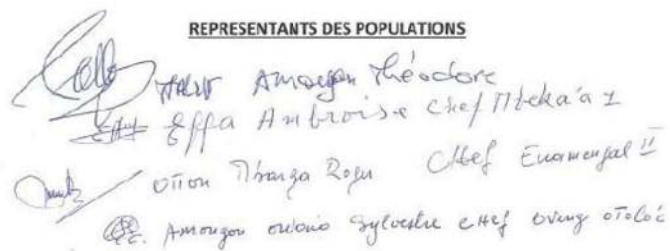 REPRESENTANTS DES POPULATIONS
Amougou Théodore
Effa Ambroise chef Mbeka'a 1
Mbarga Roger Chef Evamengal II
Amougou Sylvestre cHef oveng